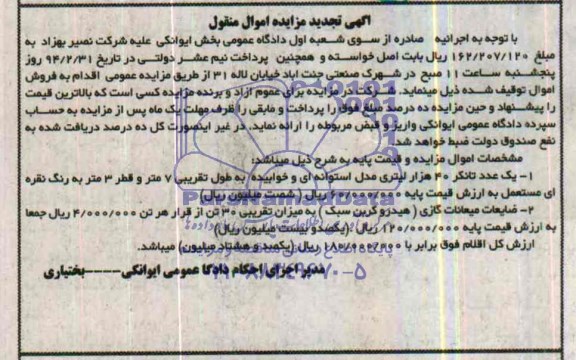 آگهی تجدید مزایده اموال منقول
با توجه به اجرائیه صادره از سوی شعبه اول دادگاه عمومی بخش ایوانکی علیه شرکت نصیر بهزاد به
مبلغ ۱۶۲/۲۰۷/۱۲۰ ریال بابت اصل خواسته و همچنین پرداخت نیم عشر دولتی در تاریخ ۹۴/۲/۳۱ روز
پنجشنبه ساعت ۱۱ صبح در شهرک صنعتی جنت اباد خیابان لاله ۳۱ از طریق مزایده عمومی اقدام به فروش
اموال توقیف شده ذیل مینماید. شرکت در مزایده برای عموم آزاد و برنده مزایده کسی است که بالاترین قیمت
را پیشنهاد و حین مزایده ده درصد مبلغ فوق را پرداخت و مابقی را ظرف مهلت یک ماه پس از مزایده به حساب
سپرده دادگاه عمومی ایوانکی واریز و قبض مربوطه را ارائه نماید. در غیر اینصورت کل ده درصد دریافت شده به
نفع صندوق دولت ضبط خواهد شد.
مشخصات اموال مزایده و قیمت پایه به شرح ذیل میباشد:
۱- یک عدد تانکر ۴۰ هزار لیتری مدل استوانه ای و خوابیده به طول تقریبی ۷ متر و قطر ۳ متر به رنگ نقره
ای مستعمل به ارزش قیمت پایه ۶۰/۰۰۰/۰۰۰ ریال (شصت میلیون ریال)
۲- ضایعات میعانات گازی (هیدرو کربن سبک) به میزان تقریبی ۳۰ تن از قرار هر تن ۴/۰۰۰/۰۰۰ ریال جمعا
به ارزش قیمت پایه ۱۲۰/۰۰۰/۰۰۰ ریال (یکصدو بیست میلیون ریال)
ارزش کل اقلام فوق برابر با ۱۸۰/۰۰۰/۰۰۰ ریال (یکصد و هشتاد میلیون) میباشد.
مدیر اجرای احکام دادگاه عمومی ایوانکی-----بختیاری
ParsNamadData